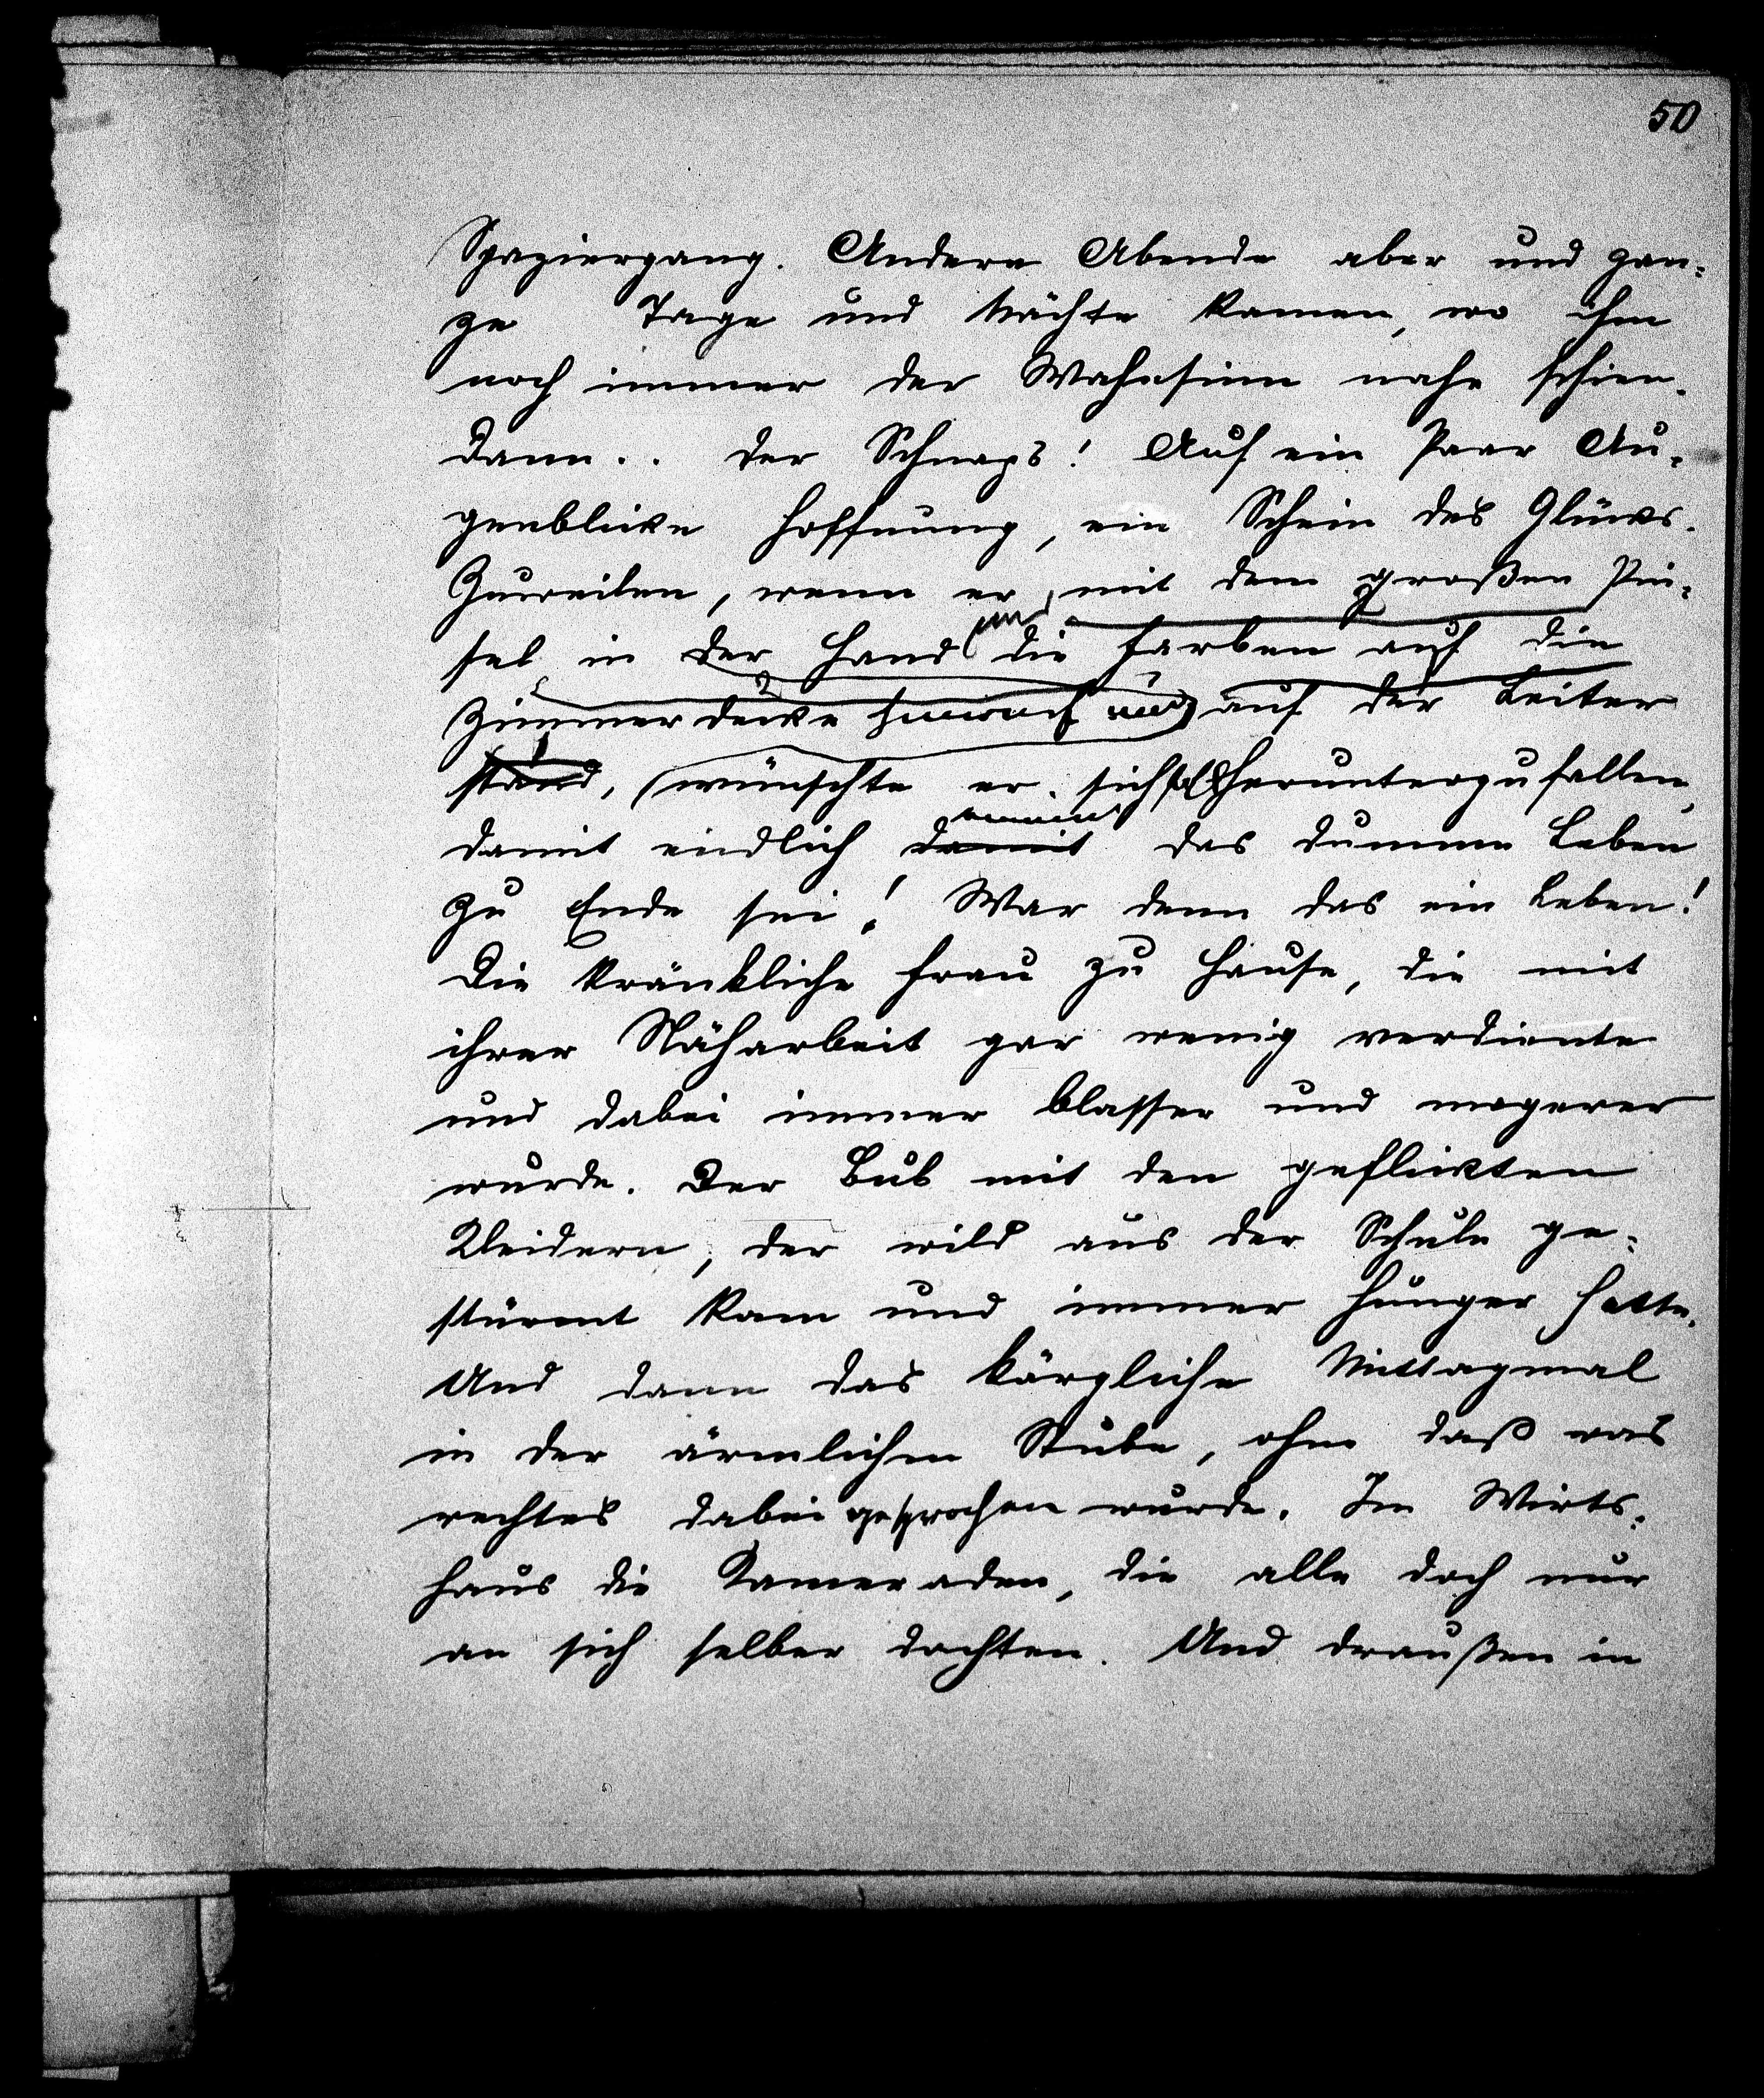 50
Spaziergang. Andere Abende aber und gan-
ze Tage und Nächte kamen, wo ihm
noch immer der Wahnsinn nahe schien.
Dann.. der Schnaps! Auf ein Paar Au-
genblicke Hoffnung, ein Schein des Glücks.
Zuweilen, wenn er, mit dem großen Pin-
sel in der Hand die Farben auf die
Zimmerdecke auf der Leiter
stand, wünschte er sich herunterzufallen,
damit endlich damit das dumme Leben
zu Ende sei! War denn das ein Leben!
Die kränkliche Frau zu Hause, die mit
ihrer Näharbeit gar wenig verdiente
und dabei immer blasser und magerer
wurde. Der Bub mit den geflickten
Kleidern, der wild aus der Schule ge-
stürmt kam und immer Hunger hatte.
Und dann das kärgliche Mittagmal
in der ärmlichen Stube, ohne daß was
rechtes dabei gesprochen wurde. Im Wirts-
haus die Kameraden, die alle doch nur
an sich selber dachten. Und draußen in